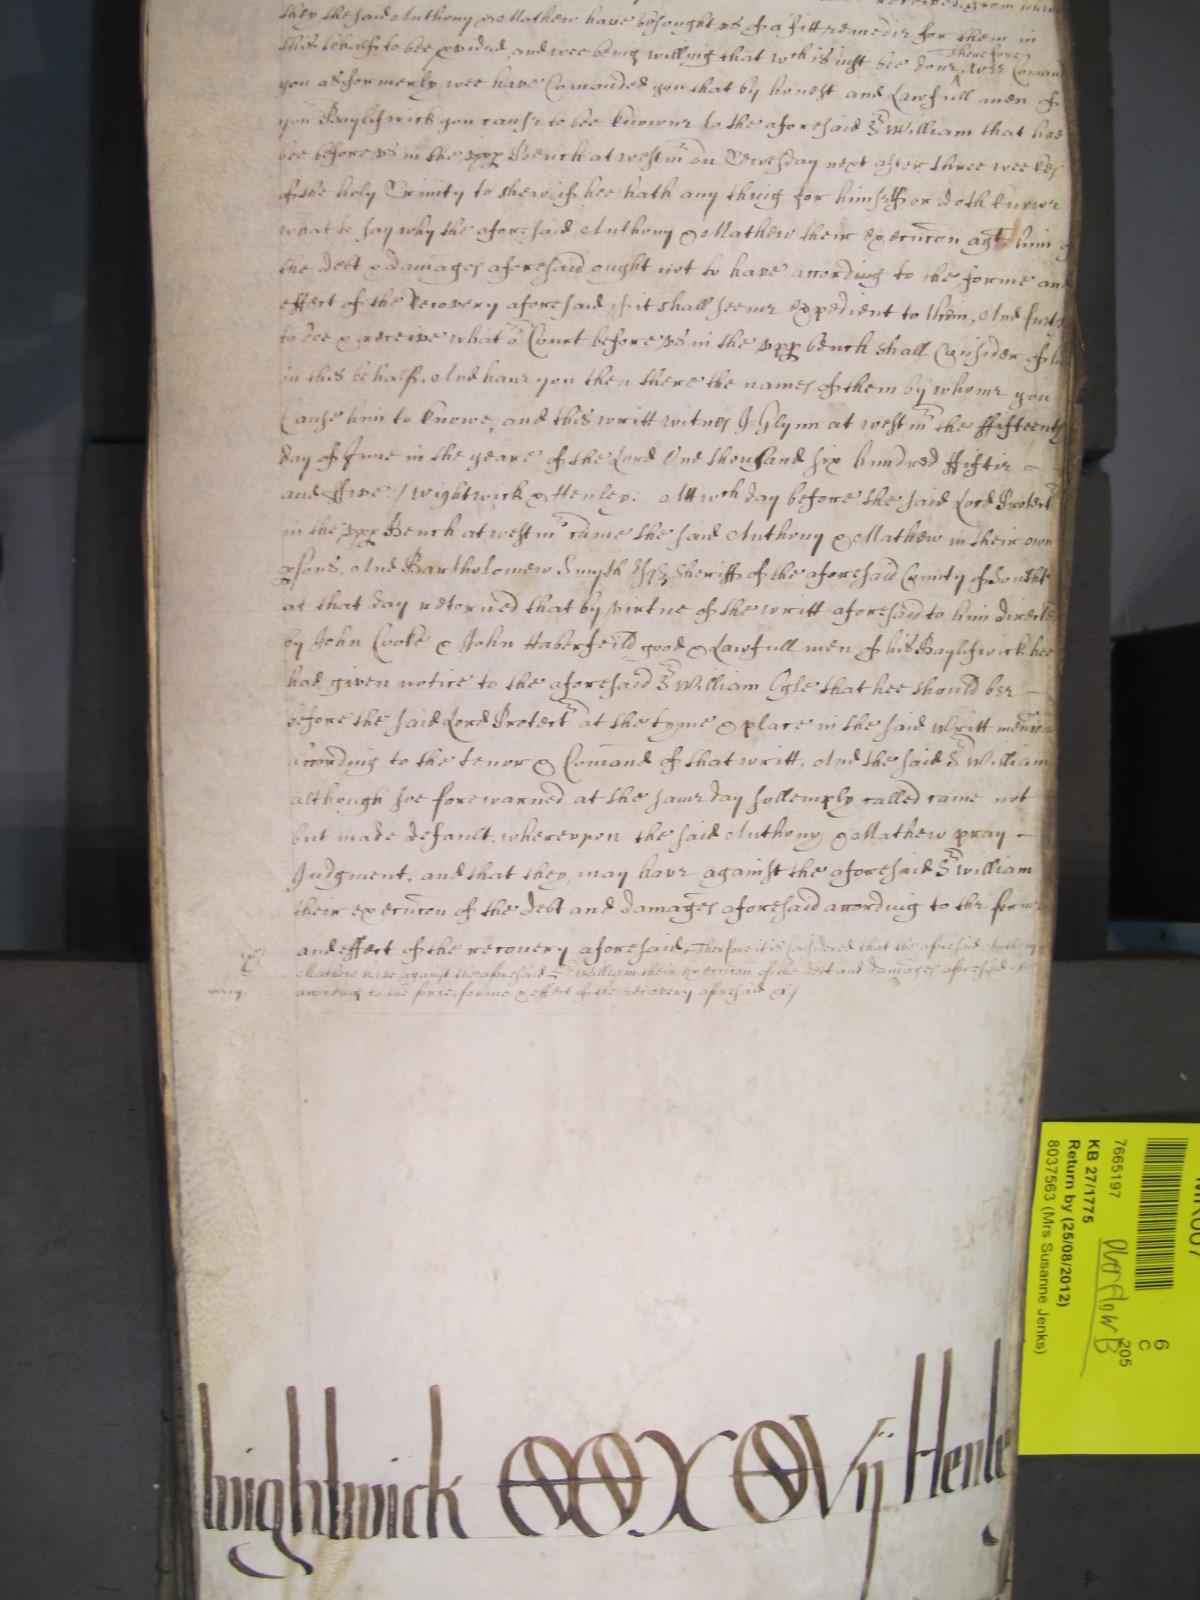 they the said Anthony & Mathew have besought us of a fitt remedie for them in
this behalfe to bee pvided, and wee being willing that wch is just bee done, therefore wee Comand
you as formerly wee have Comanded you that by honest and Lawfull men of
you Baylifwick you cause to bee knowne to the aforesaid Sr William that hee
bee before us in the upp Bench at westmr on Tewesday next after three weekes
of the holy Trinity to shew if hee hath any thing for himselfe or doth knowe
what to say why the aforesaid Anthony & Mathew their execucon agt him of
the debt & damages aforesaid ought not to have according to the forme and
effect of the Recovery aforesaid if it shall seeme expedient to them, And further
to doe & receive what or Court before us in the upp bench shall Consider of him
in this behalf, And have you then there the names of them by whome you
Cause him to knowe, and this writt witnes J. Glynn at westmr the ffifteenth
day of June in the yeare of the Lord One thousand six hundred ffiftie
and ffive / Wightwick & Henley: Att wch day before the said Lord Protectr
in the upp Bench at westmr came the said Anthony & Mathew in their own
psons, And Bartholomew Smyth Esqr Sheriff of the aforesaid County of Southt
at that day retorned that by virtue of the writt aforesaid to him directed
by John Cooke & John Haberfeild good & Lawfull men of his Baylifwick hee
had given notice to the aforesaid Sr William Ogle that hee should bee
before the said Lord Protectr at the tyme & place in the said writt mencond
according to the tenor & Comand of that writt, And the said Sr William
although soe forewarned at the same day sollemply called came not
but made default, whereupon the said Anthony & Mathew pray
Judgment, and that they may have against the aforesaid Sr William
their execucon of the debt and damages aforesaid according to the forme
and effect of the recovery aforesaid, Therefore it is Considered that the aforesaid Anthony &
Mathew have against the aforesaid Sr William their execucon of the debt and damages aforesaid
according to the force, forme & effect of the recovery aforesaid &c
Wightwick Henley
7665197
KB 27/1775
Return by (25/08/2012)
8037563 (Mrs Susanne Jenks)
Overflow B
6
C
205